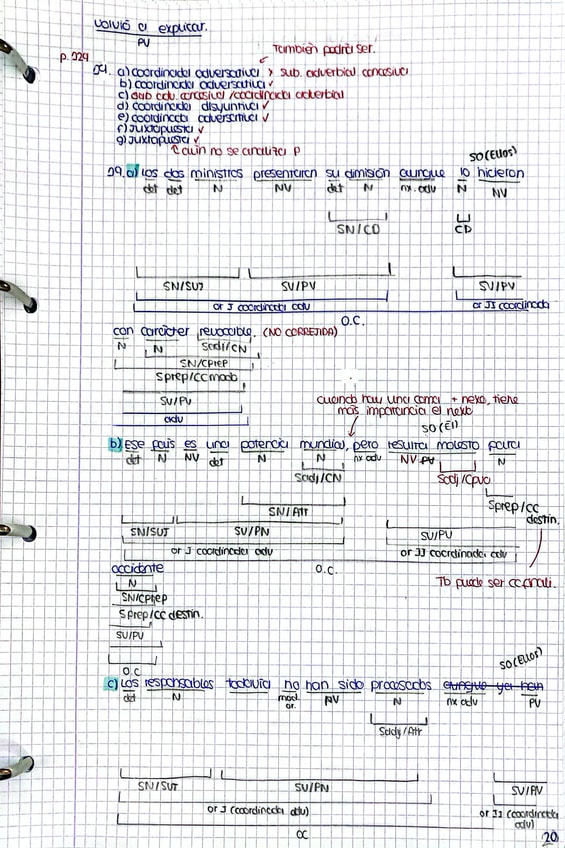 volvió a explicar.
PV
p. 224
También podría ser.
a) coordinada adversativa > sub. adverbial concesiva
b) coordinada adversativa ✓
c) sub adv. concesiva / coordinada adverbial
d) coordinada disyuntiva ✓
e) coordinada adversativa ✓
f) Juxtapuesta ✓
g) Juxtapuesta ✓
aún no se analiza P
SO (Ellos)
29. a) Los dos ministros presentaron su dimisión aunque lo hicieron
det det N NV det N nx. adv N NV
SN/CD CD
SN/SUJ SV/PV SV/PV
or I coordinada adv or II coordinada
O.C.
con carácter revocable. (NO CORREJIDA)
N N Sadj/CN
SN/CPREP
Sprep/CC modo
SV/PV
adv
cuando hay una coma + nexo, tiene
más importancia el nexo
SO (Él)
b) Ese país es una potencia mundial, pero resulta molesto para
det N NV det N N nx adv NV PV N
Sadj/CN Sadj/Cpvo
SN/Atr Sprep/CC destin.
SN/SUJ SV/PN SV/PV
or I coordinada adv or II coordinada adv
O.C.
Tb puede ser CC finali.
occidente
N
SN/CPREP
Sprep/CC destin.
SV/PV
O.C
SO (Ellos)
c) Los responsables todavía no han sido procesados aunque ya han
det N mod. or. PV N nx adv PV
Sadj/Atr
SN/SUJ SV/PN SV/PV
or I (coordinada adv) or II (coordinada adv)
OC
20